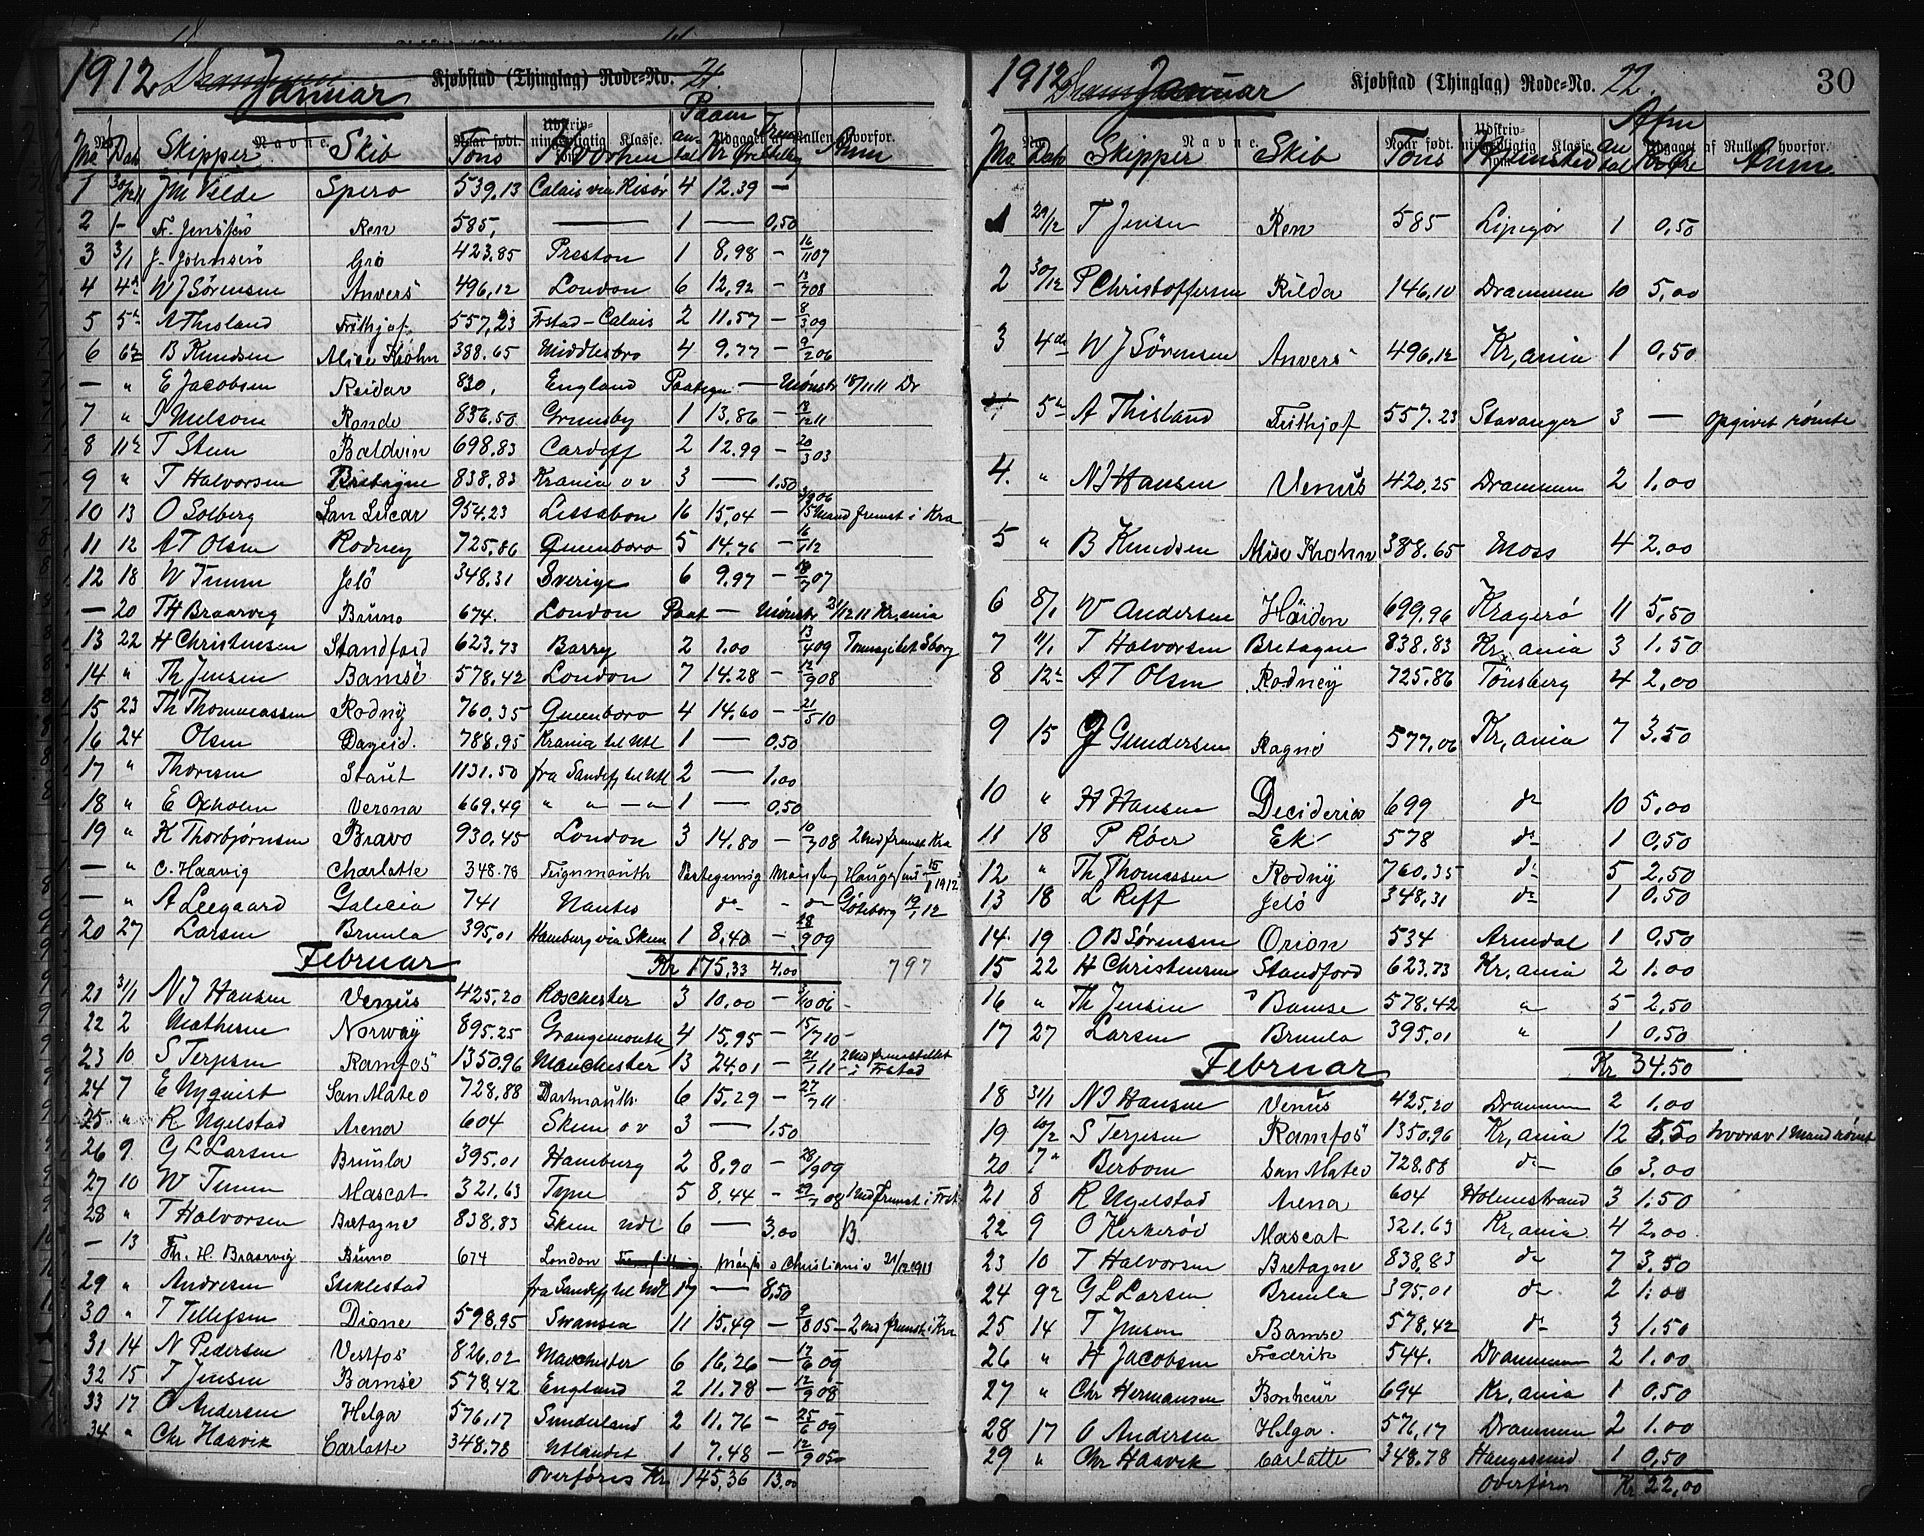 1912 Januar Kjøbstad (Thinglag) Rode-No. 21.
No Dat Skipper Skib Tons Hvorhen Paam antal Kr Øre Anm
1 30/12 11 J M Velde Spero 539,13 Calais via Risør 4 12.39 —
2 1- F. Jensen Ren 585, — 1 — 0,50
3 3/1 J. Johnsen Gro 423.85 Preston 1 8,98 — 16/11 07
4 4de W J Sørensen Anvers 496,12 London 6 12,92 — 13/7 08
5 5te A Thisland Frithjof 557,23 Frstad - Calais 2 11.57 — 8/3 09
6 6te B Knudsen Alice Krohn 388.65 Middlesbro 4 9.77 — 9/2 06
— " E Jacobsen Reidar 830, England Paategn — Mønstr 18/11 11 Dr
7 " S Melsom Ronde 836.50 Grimsby 1 13.86 — 13/12 11
8 11te T Steen Baldvin 698.83 Cardiff 2 12.99 — 20/3 03
9 " T Halvorsen Bretagne 838,83 Krania o v 3 — 1.50
10 13 O Solberg San Lucar 954.23 Lissabon 16 15,04 — 3/9 06 15 Mand fremst i Kra
11 12 A T Olsen Rodney 725,86 Queenboro 5 14.76 — 16/1 12
12 18 W Timm Jelö 348.31 Sverige 6 9.97 — 19/7 07
— 20 TH Braarvig Bruno 674. London Paat — Mønstr 21/12 11 Kr,ania
13 22 H Christensen Standford 623,73 Barry 2 1.00 — 13/4 09
14 " Th Jensen Bamse 578,42 London 7 14.28 — 12/9 08
15 23 Th Thomassen Rodny 760,35 Queenboro 4 14.60 — 21/5 10
16 24 Olsen Dageid. 788,95 Krania til Utl 1 — 0,50
17 " Thoresen Staut 1131.50 fra Sandefj til Utl 2 — 1.00
18 " E Oxholm Verona 669,49 " " — " 1 — 0,50
19 " K Thorbjørnsen Bravo 930,45 London 3 14.80 — 10/7 08 2 Md fremst Kra
— " C. Haavig Charlotte 348.78 Teignmouth Paategning Haugesund 15/1 1912
— " A Leegaard Galicia 741 Nantes do - do Göteborg 19/1 12
20 27 Larsen Brunla 395,01 Hamburg via Skien 1 8,40 — 28/9 09
Februar Kr 175.33 4.00 797
21 31/1 N J Hansen Venus 425.20 Roschester 3 10.00 — 3/10 06 -
22 2 Mathesen Norway 895.25 Grangemouth 4 15,95 — 15/7 10 -
23 10 S Terjesen Ramfos 1350,96 Manchester 13 24.01 — 21/7 11 2 Md fremstillet i Frstad
24 7 E Nyquist San Mateo 728,88 Dartmouth 6 15,29 — 27/7 11
25 " R Ugelstad Arena 604 Skien o v 3 — 1.50
26 9 G L Larsen Brunla 395.01 Hamburg 2 8,90 — 28/9 09
27 10 W Timm Mascat 321,63 Tyne 5 8,44 — 19/7 08 1 Md fremst i Frst.
28 " T Halvorsen Bretagne 838,83 Skien Udl 6 — 3.00 B
— 13 Th. H. Braarvig Bruno 674 London Christiania 21/12 1911
29 " Andresen Stiklestad fra Sandefj til Udl 17 — 8,50
30 " T Tellefsen Dione 598,95 Swansea 11 15,49 — 9/8 05 - 2 Md fremst i Kra
31 14 N Pedersen Vestfos 826.02 Manchester 6 16.26 — 12/6 09
32 15 T Jensen Bamse 578,42 England 2 11.78 — 12/9 08
33 17 O Andersen Helga 576,17 Sunderland 2 11.76 — 25/6 09
34 " Chr Haavik Carlotte 348.78 Utlandet 1 7.48 — 12/9 05
Overføres Kr 145,36 13.00
1912 Januar Kjøbstad (Thinglag) Rode-No. 22. 30
No Dato Skipper Skib Tons Hjemsted Afm antal Kr Øre Anm.
1 29/12 T Jensen Ren 585 Lyngør 1 0,50
2 30/12 P Christoffersen Kilda 146,10 Drammen 10 5,00
3 4de W J Sørensen Anvers 496,12 Kr,ania 1 0,50
5te A Thisland Frithjof 557.23 Stavanger 3 — opgivet rømte
4. " N J Hansen Venus 420,25 Drammen 2 1.00
5 " B Knudsen Alice Krohn 388.65 Moss 4 2,00
6 8/1 W Andersen Høiden 699,96 Kragerö 11 5,50
7 11/1 T Halvorsen Bretagne 838,83 Kr,ania 3 1.50
8 12te A T Olsen Rodney 725.86 Tönsberg 4 2,00
9 15 G Gundersen Ragno 577,06 Kr,ania 7 3.50
10 " H Hansen Decideria 699 do 10 5,00
11 18 P Röer Ek 578 do 1 0,50
12 " Th Thomassen Rodny 760,35 do 5 2,50
13 18 L Reff Jelö 348,31 do 1 0,50
14 19 O B Sørensen Orion 534 Arendal 1 0,50
15 22 H Christensen Standford 623,73 Kr,ania 2 1.00
16 " Th Jensen Bamse 578,42 " 5 2,50
17 27 Larsen Brunla 395.01 " 1 0,50
Februar Kr 34.50
18 31/1 N J Hansen Venus 425,20 Drammen 2 1.00
19 10/2 S Terjesen Ramfos 1350,96 Kr,ania 12 5.50 hvorav 1 Mand rømt
20 7" Berbom San Mateo 728.88 do 6 3.00
21 8 R Ugelstad Arena 604 Holmestrand 3 1.50
22 9 O Kirkerød Mascat 321.63 Kr,ania 4 2.00
23 10 T Halvorsen Bretagne 838,83 do 7 3.50
24 9de G L Larsen Brunla 395.01 do 2 1.00
25 14 T Jensen Bamse 578,42 do 3 1.50
26 " H Jacobsen Fredrik 544. Drammen 2 1.00
27 " Chr Hermansen Bonheur 694 Kr,ania 1 0,50
28 17 O Andersen Helga. 576,17 Drammen 2 1.00
29 " Chr Haavik Carlotte 348.78 Haugesund 1 0,50
Overføres Kr 22,00